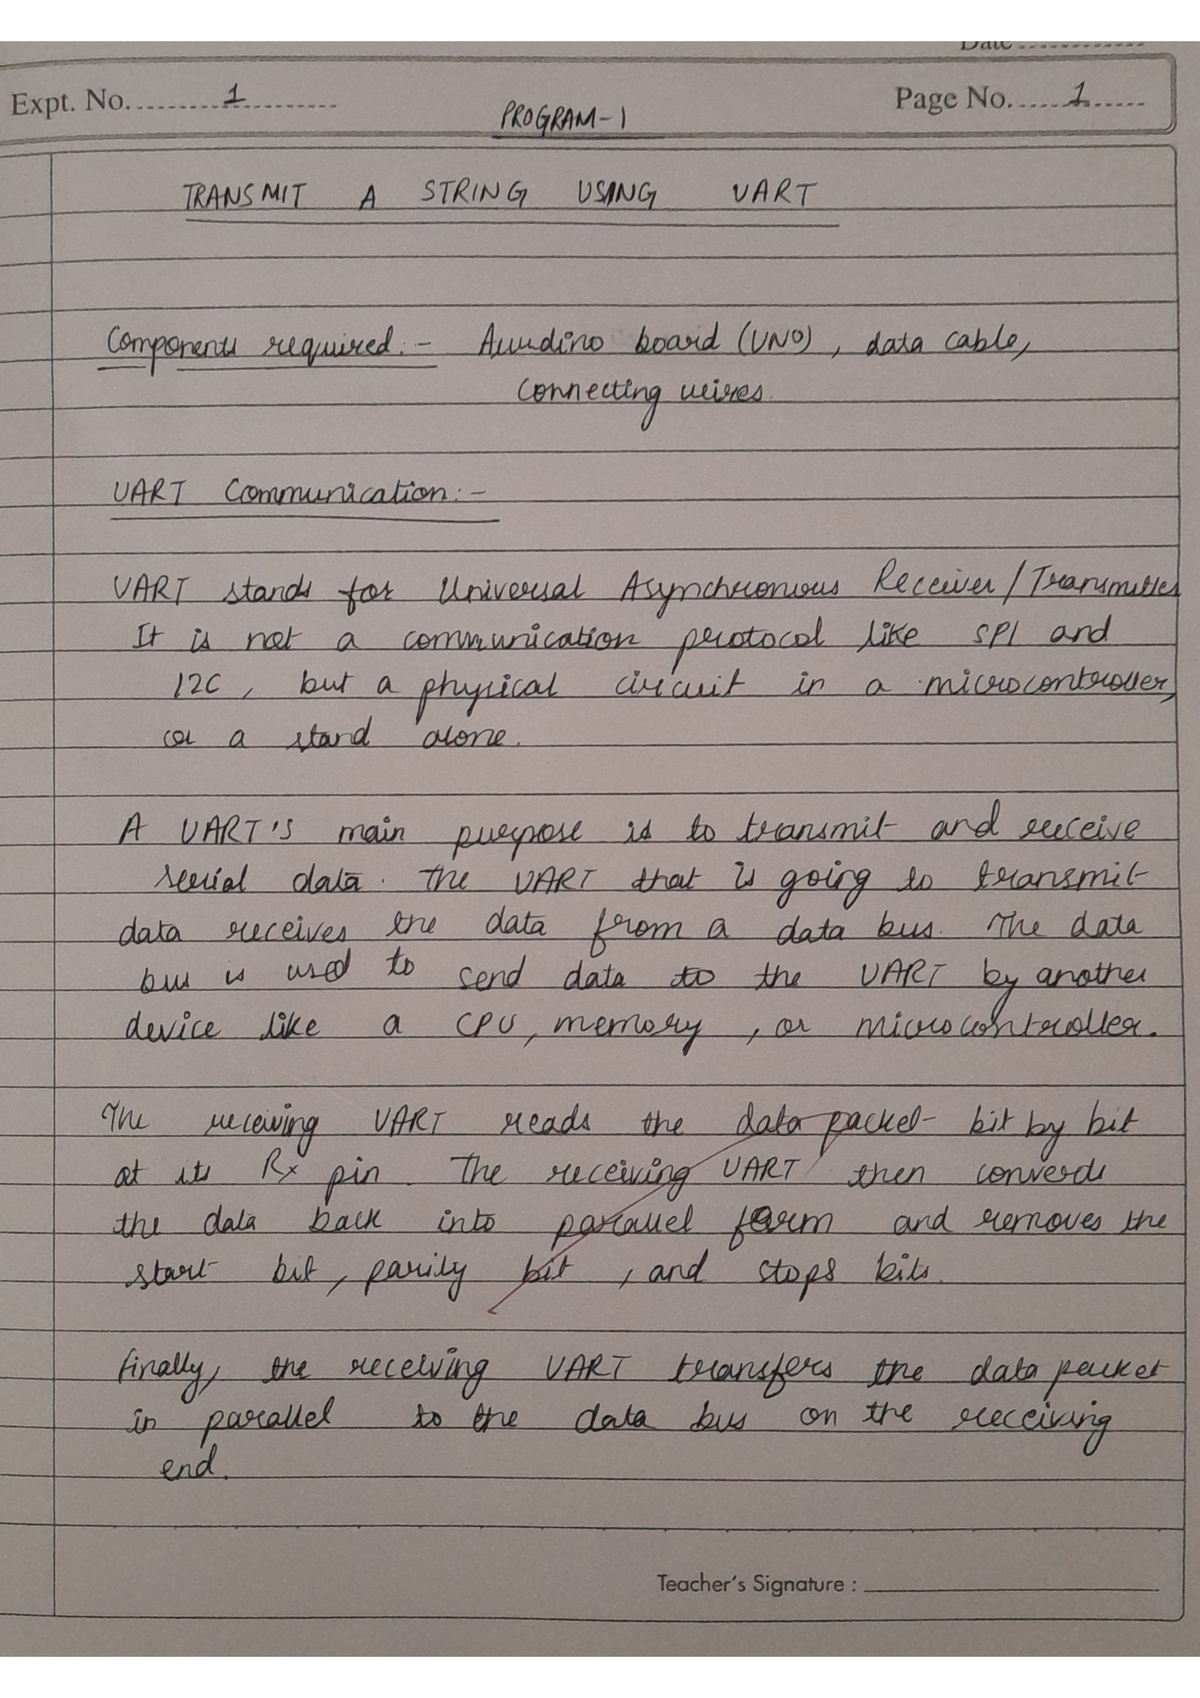 Date ..............
Expt. No. 1
Page No. 1
PROGRAM-1
TRANSMIT A STRING USING UART
Components required:- Aurdino board (UNO), data cable,
connecting wires.
UART Communication:-
UART stands for Universal Asynchronous Receiver/Transmitter
It is not a communication protocol like SPI and
I2C, but a physical circuit in a microcontroller,
or a stand alone.
A UART's main purpose is to transmit and receive
serial data. The UART that is going to transmit
data receives the data from a data bus. The data
bus is used to send data to the UART by another
device like a CPU, memory, or microcontroller.
The receiving UART reads the data packet bit by bit
at its Rx pin. The receiving UART then converts
the data back into parallel form and removes the
start bit, parity bit, and stops bits.
finally, the receiving UART transfers the data packet
in parallel to the data bus on the receiving
end.
Teacher's Signature :